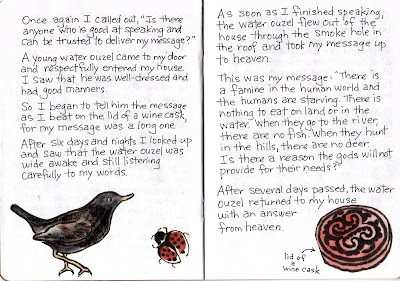 Once again I called out, "Is there
anyone who is good at speaking and
can be trusted to deliver my message?"
A young water ouzel came to my door
and respectfully entered my house.
I saw that he was well-dressed and
had good manners.
So I began to tell him the message
as I beat on the lid of a wine cask,
for my message was a long one.
After six days and nights I looked up
and saw that the water ouzel was
wide awake and still listening
carefully to my words.
As soon as I finished speaking,
the water ouzel flew out of the
house through the smoke hole in
the roof and took my message up
to heaven.
This was my message: "There is
a famine in the human world and
the humans are starving. There is
nothing to eat on land or in the
water. When they go to the river,
there are no fish. When they hunt
in the hills, there are no deer.
Is there a reason the gods will not
provide for their needs?"
After several days passed, the water
ouzel returned to my house
with an answer
from heaven.
lid of
a
wine cask